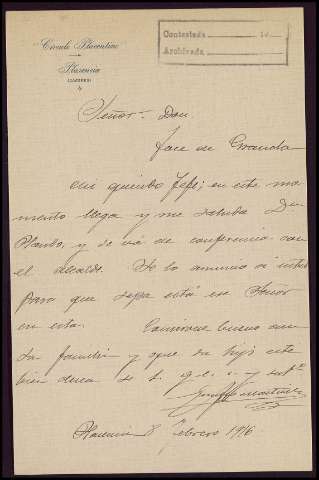 Círculo Placentino
Plasencia
(CÁCERES)
Contestada 19
Archivada
Señor Don
Jace de Granda
Mi querido Jefe; en este mo-
mento llega y me saluda Don
y se vá de conferencia con
el alcalde. Se lo anuncio á usted
para que sepa está ese Señor
en esta. Consérvese bueno con
su familia y que su hijo este
bien desea su s. q. e. s. m.
Martínez
Plasencia 8 Febrero 1916